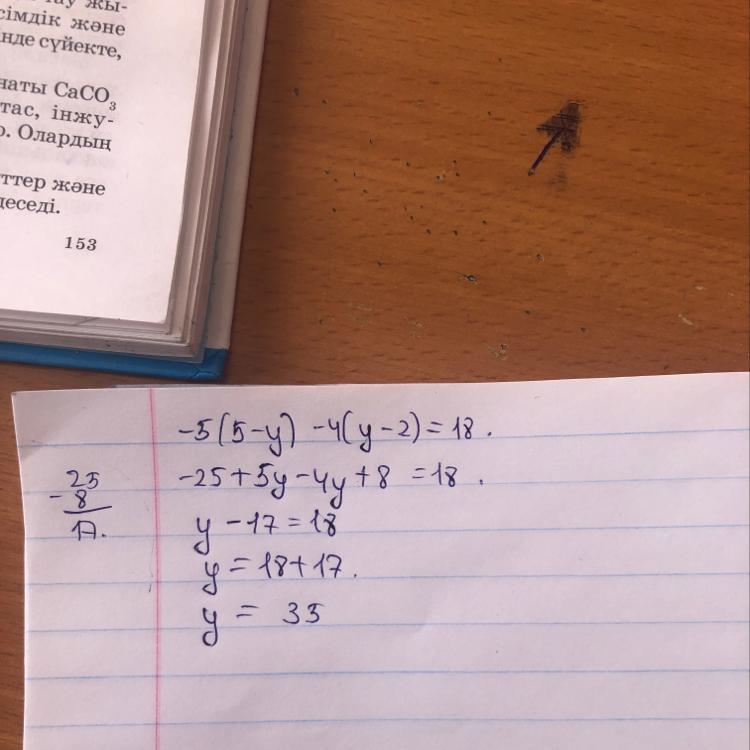 жы-
сімдік және
нде сүйекте,
наты CaCO₃
тас, інжу-
р. Олардың
ттер және
деседі.
153
-5(5-y) -4(y-2) = 18.
-25+5y-4y+8 = 18.
25
- 8
17.
y - 17 = 18
y = 18+17.
y = 35